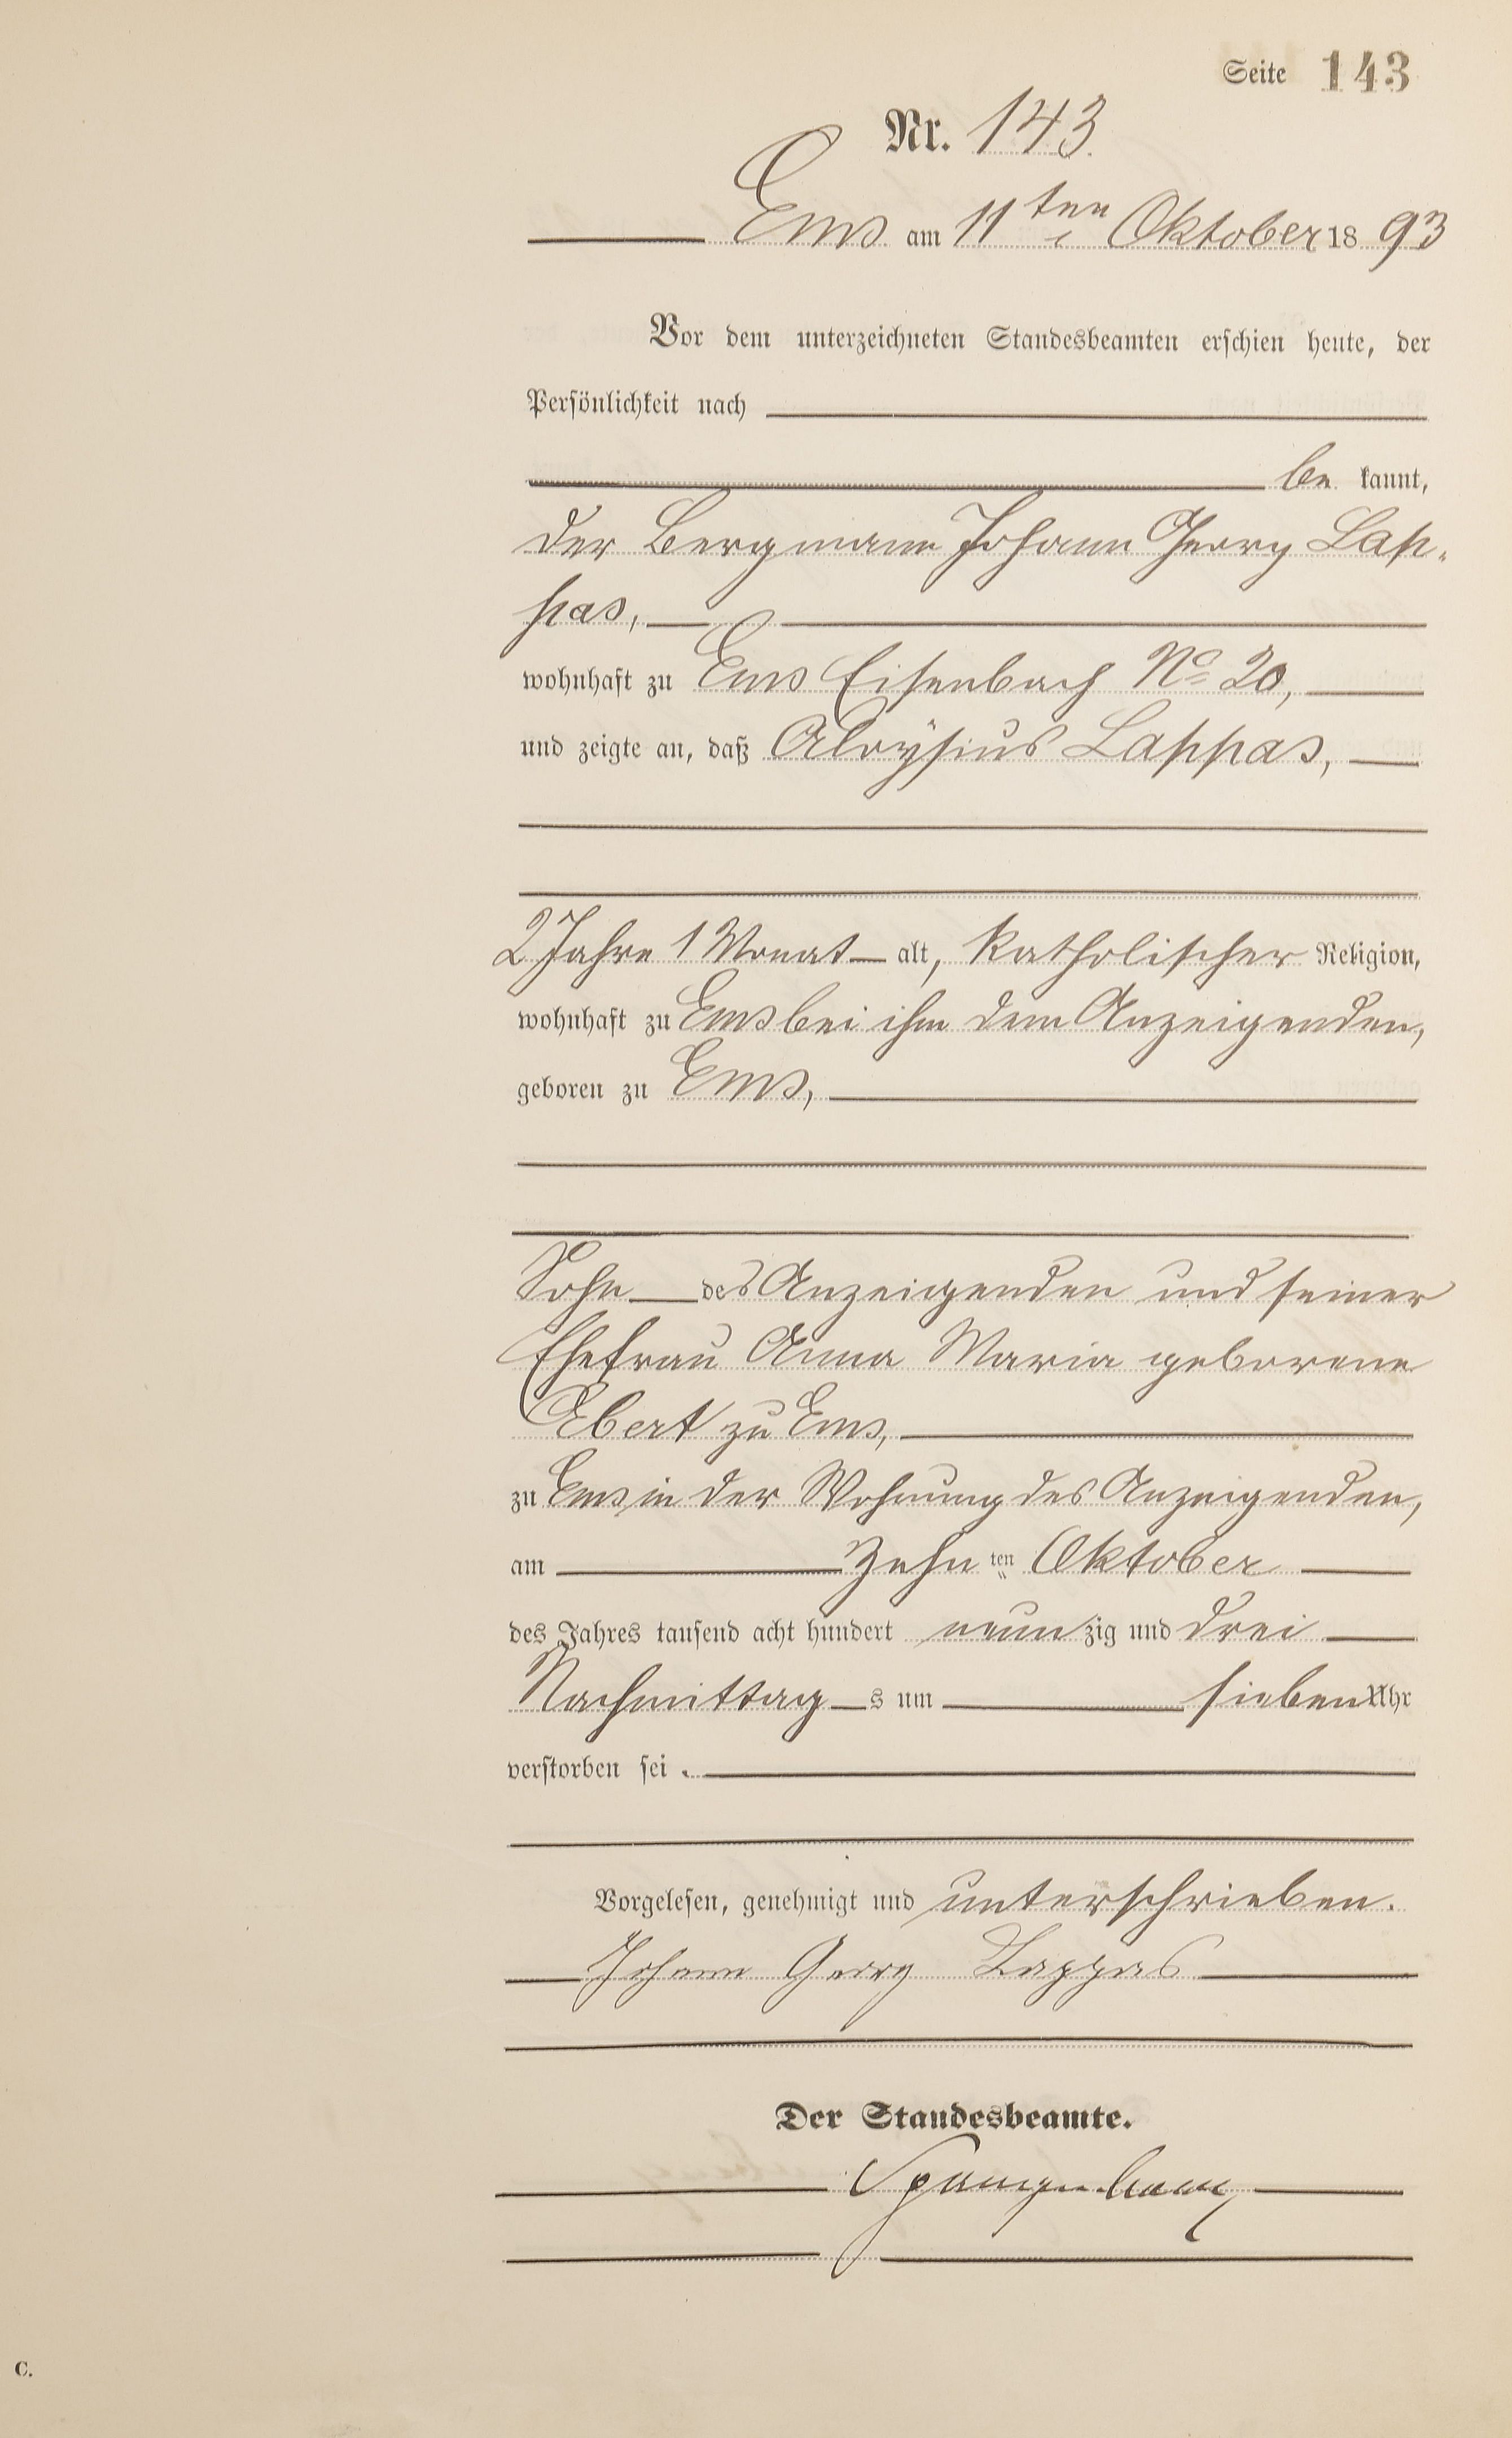 Seite 143
Nr. 143.
Ems am 11ten Oktober 1893
Vor dem unterzeichneten Standesbeamten erschien heute, der
Persönlichkeit nach
be kannt,
der Bergmann Johann Georg Lap-
pas,
wohnhaft zu Ems Eisenbach No 20,
und zeigte an, daß Aloÿsius Lappas,
2 Jahre 1 Monat alt, katholischer Religion,
wohnhaft zu Ems bei ihm dem Anzeigenden,
geboren zu Ems,
Sohn des Anzeigenden und seiner
Ehefrau Anna Maria geborene
Ebert zu Ems,
zu Ems in der Wohnung des Anzeigenden,
am Zehn ten Oktober
des Jahres tausend acht hundert neun zig und drei
Nachmittag s um sieben Uhr
verstorben sei.
Vorgelesen, genehmigt und unterschrieben.
Johann Georg Lappas
Der Standesbeamte.
Spangenberg
C.